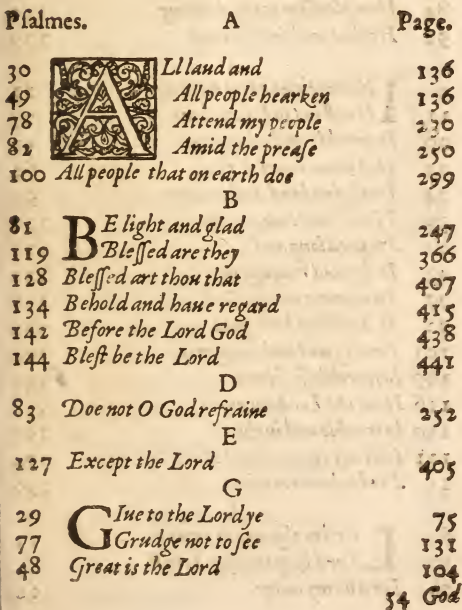 Pſalmes. A Page.
30 ALl laud and 136
49 All people hearken 136
78 Attend my people 230
82 Amid the preaſe 250
100 All people that on earth doe 299
B
81 BE light and glad 247
119 Bleſſed are they 366
128 Bleſſed art thou that 407
134 Behold and haue regard 415
142 Before the Lord God 438
144 Bleſt be the Lord 441
D
83 Doe not O God refraine 252
E
127 Except the Lord 405
G
29 GIue to the Lord ye 75
77 Grudge not to ſee 131
48 Great is the Lord 104
54 God